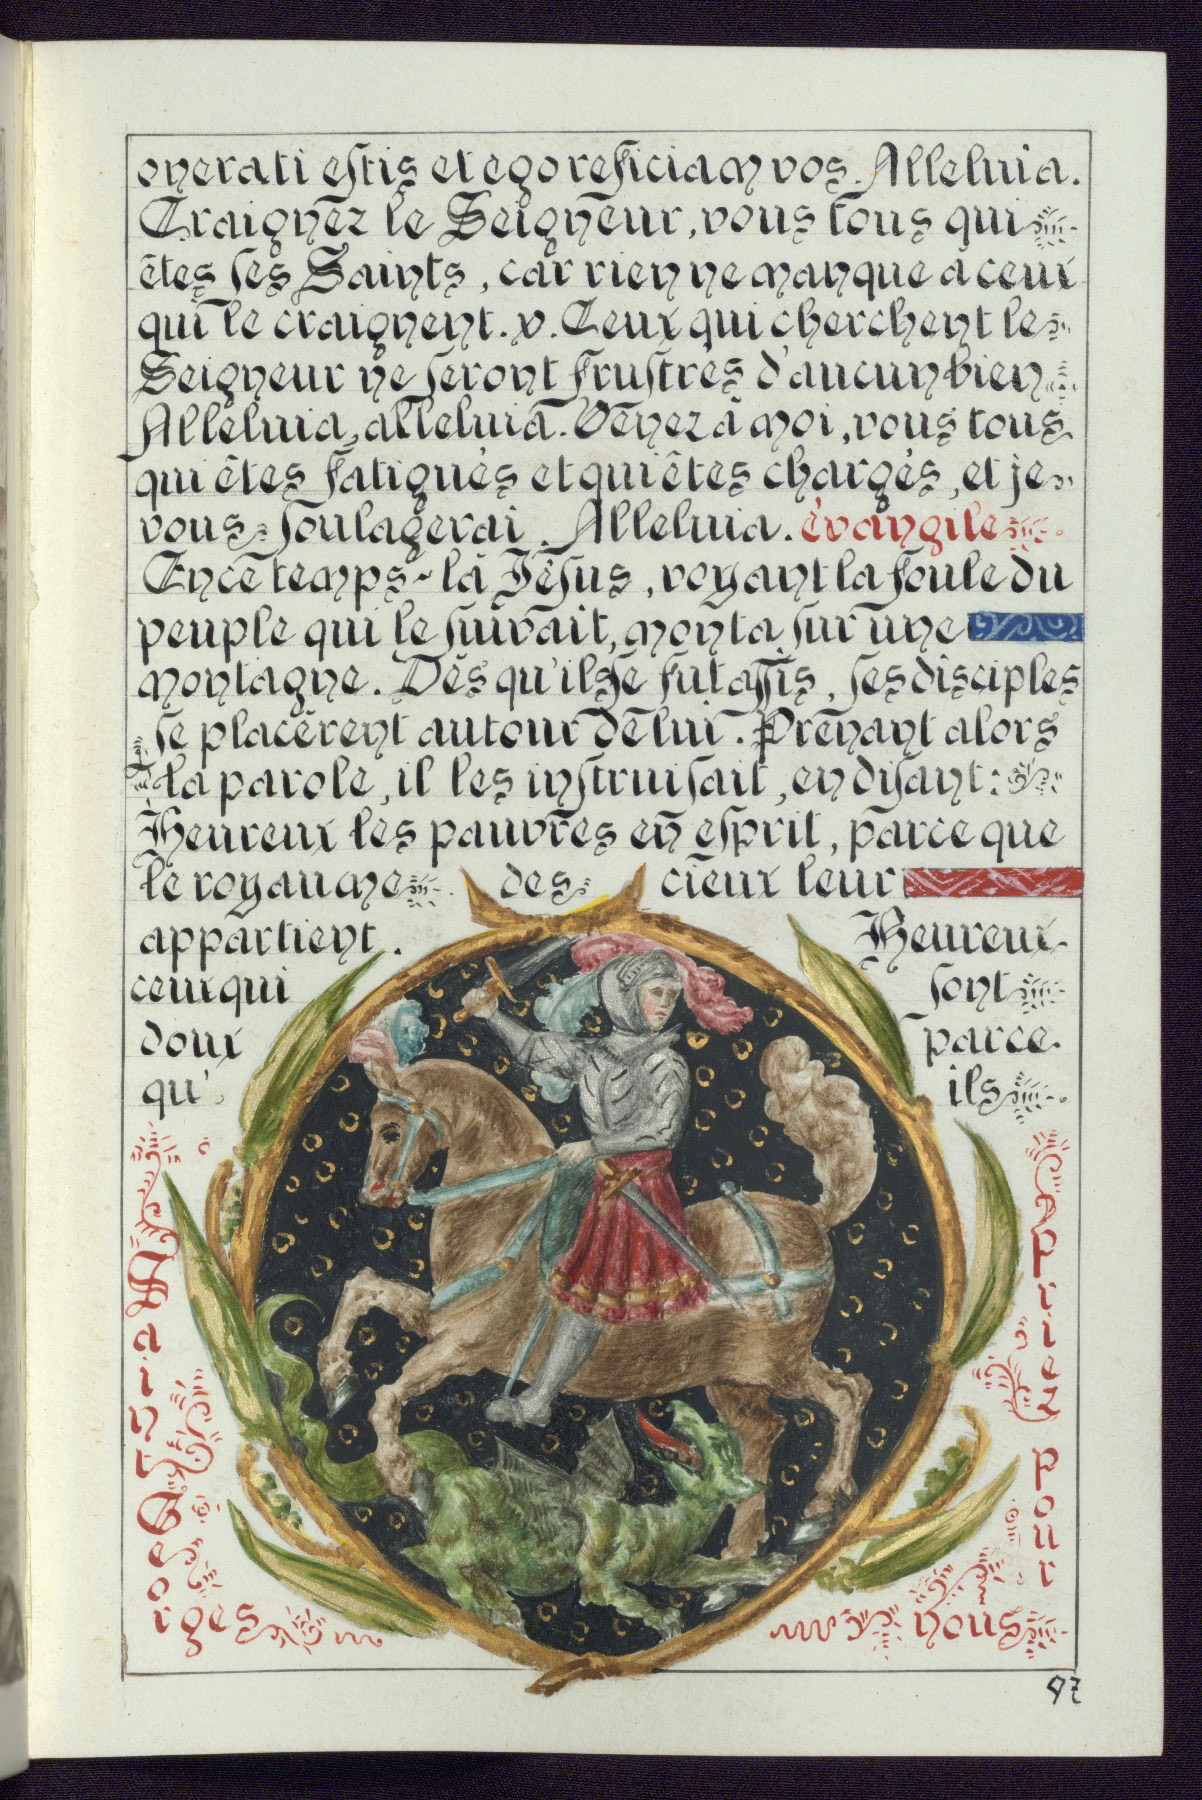 onerati estis et ego reficiam vos. Alleluia.
Craignez le Seigneur, vous tous qui
êtes ses Saints, car rien ne manque à ceux
qui le craignent. v. Ceux qui cherchent le
Seigneur ne seront frustrés d'aucun bien
Alleluia, alleluia. Venez à moi, vous tous
qui êtes fatigués et qui êtes chargés, et je
vous soulagerai. Alleluia. évangile
En ce temps-là Jésus, voyant la foule du
peuple qui le suivait, monta sur une
montagne. Dès qu'il se fut assis, ses disciples
se placèrent autour de lui. Prenant alors
la parole, il les instruisait, en disant:
Heureux les pauvres en esprit, parce que
le royaume des cieux leur
appartient. Heureux
ceux qui sont
doux parce
qu' ils
Saint Georges
priez pour nous
97